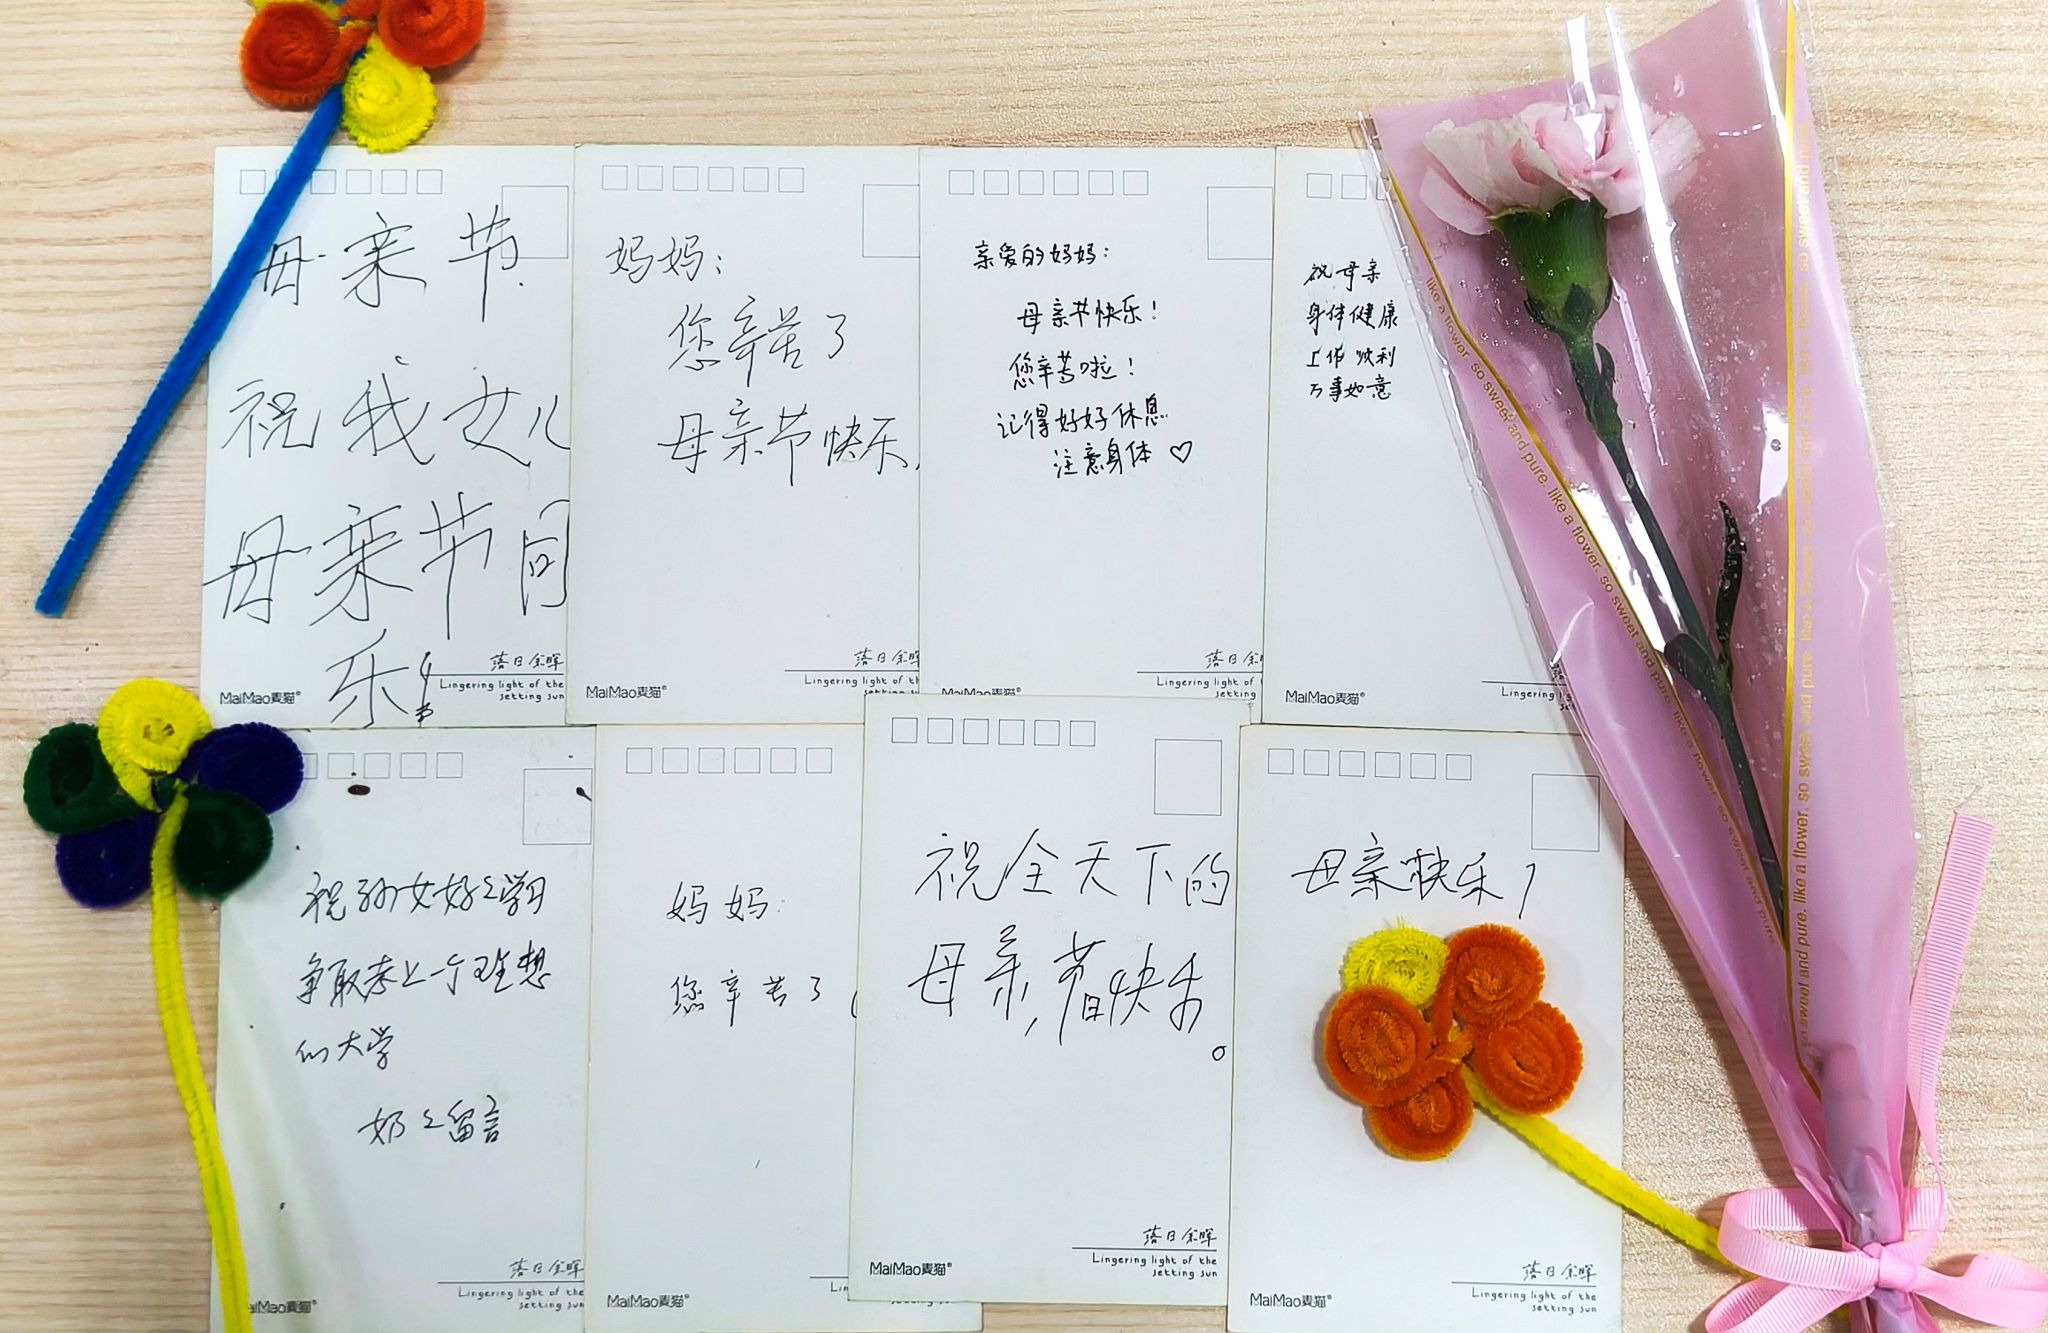 母亲节
祝我女儿
母亲节同
乐!
落日余晖
Lingering light of the
setting sun
MaiMao麦猫®
妈妈:
您辛苦了
母亲节快乐
落日余晖
Lingering light of th
setting su
MaiMao麦猫®
亲爱的妈妈:
母亲节快乐!
您辛苦啦!
记得好好休息
注意身体♡
落日余晖
Lingering light of
setting
MaiMao麦猫®
祝母亲
身体健康
工作顺利
万事如意
Lingering
MaiMao麦猫®
祝孙女好好学习
争取考上一个理想
的大学
奶奶留言
落日余晖
Lingering light of the
setting sun
aiMao麦猫®
妈妈:
您辛苦了
Lin
MaiMao麦猫®
祝全天下的
母亲,节日快乐。
落日余晖
Lingering light of the
setting sun
MaiMao麦猫®
母亲快乐!
落日余晖
Lingering light of the
setting sun
MaiMao麦猫®
like a flower. so sweet and pure. like a flower. so sweet and pure. like a flower. so sweet and pure
so sweet and pure. like a flower. so sweet and pure. like a flower. so sweet and pure